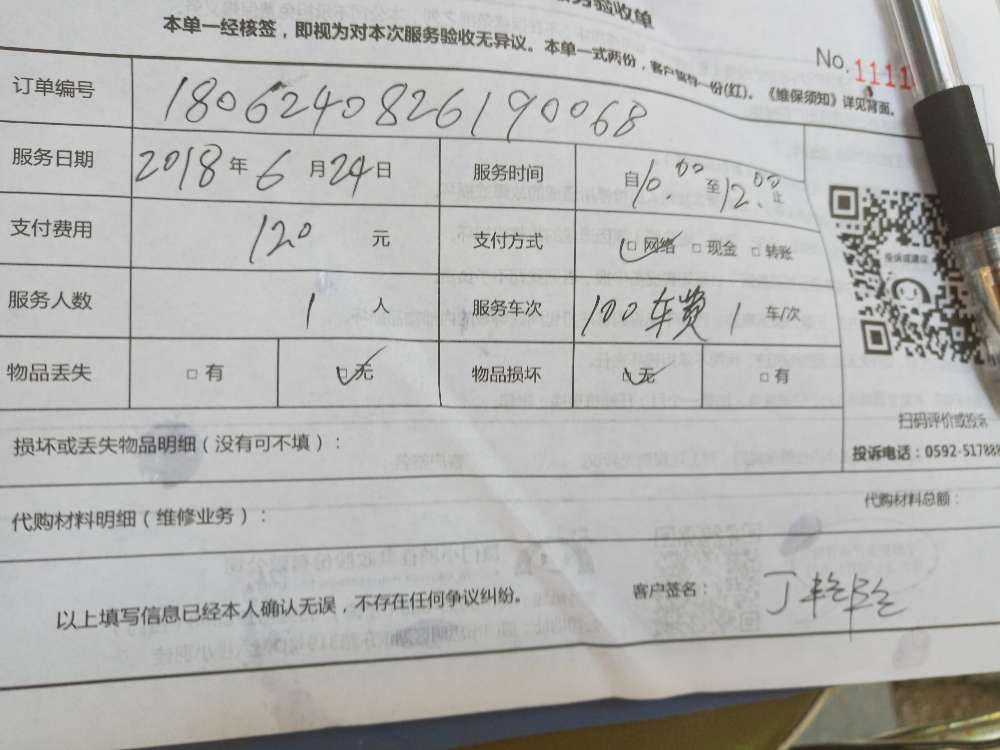 服务验收单
本单一经核签，即视为对本次服务验收无异议。本单一式两份，客户留存一份(红)。《维保须知》详见背面。
No.1111
订单编号 180624082619068
服务日期 2018年6月24日 服务时间 自10:00至12:00止
支付费用 120 元 支付方式 □网络 □现金 □转账
服务人数 1 人 服务车次 100车费 1 车/次
物品丢失 □有 □无 物品损坏 □无 □有
投诉或建议
扫码评价或投诉
投诉电话：0592-517888
损坏或丢失物品明细（没有可不填）：
代购材料明细（维修业务）：
代购材料总额：
以上填写信息已经本人确认无误，不存在任何争议纠纷。
客户签名：丁